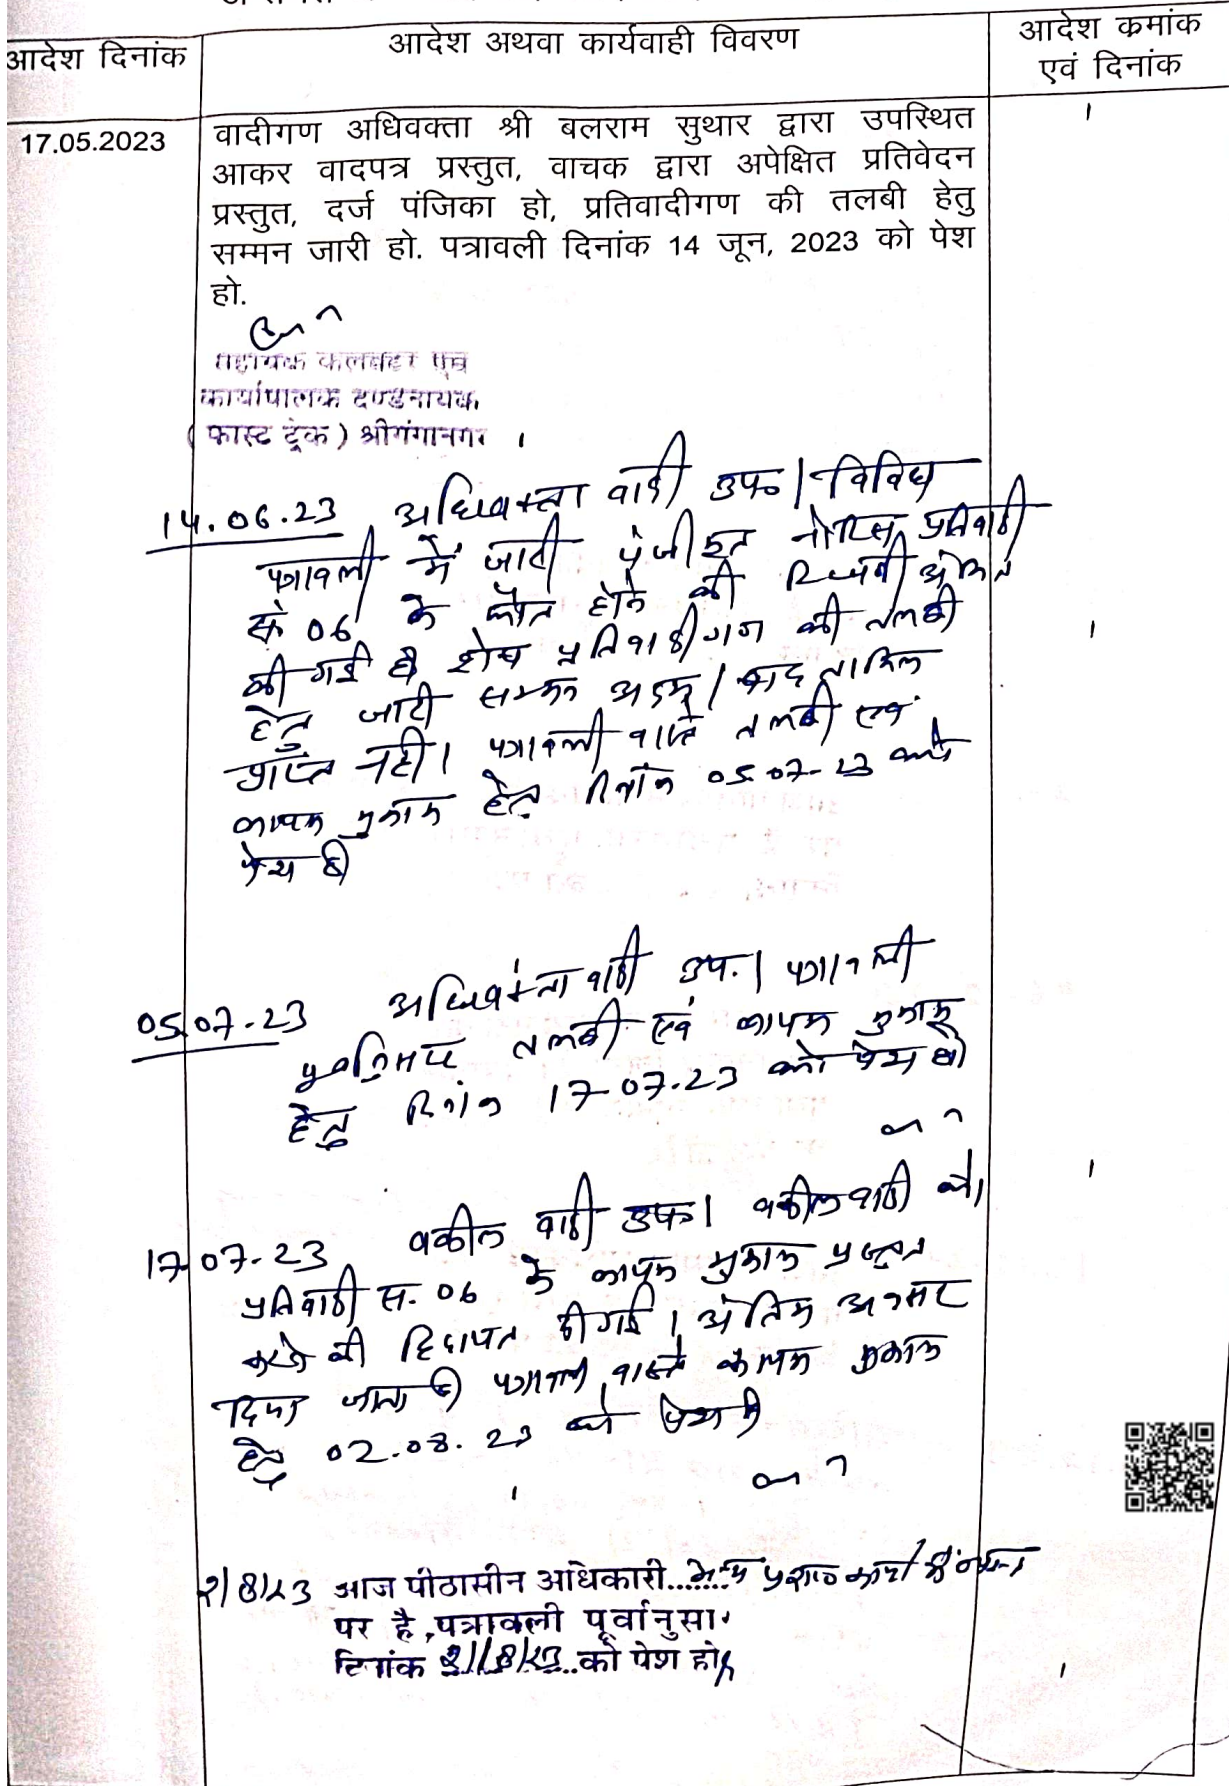 आदेश दिनांक
आदेश अथवा कार्यवाही विवरण
आदेश क्रमांक
एवं दिनांक
17.05.2023
वादीगण अधिवक्ता श्री बलराम सुथार द्वारा उपस्थित
आकर वादपत्र प्रस्तुत, वाचक द्वारा अपेक्षित प्रतिवेदन
प्रस्तुत, दर्ज पंजिका हो, प्रतिवादीगण की तलबी हेतु
सम्मन जारी हो. पत्रावली दिनांक 14 जून, 2023 को पेश
हो.
सहायक कलक्टर एवं
कार्यपालक दण्डनायक
( फास्ट ट्रेक ) श्रीगंगानगर
14.06.23 अधिवक्ता वादी उफ। विविध
पत्रावली में जारी पंजीकृत नोटिस प्रतिवादी
सं 06 के फौत होने की रिपोर्ट अंकित
की गई है शेष प्रतिवादीगण की तलबी
हेतु जारी सम्मन अदम / बाद तामिल
प्राप्त नहीं। पत्रावली वास्ते तलबी एवं
कायम मुकाम हेतु दिनांक 05.07-23 को
पेश हो
05.07-23 अधिवक्ता वादी उप.। पत्रावली
पूर्वानुसार तलबी एवं कायम मुकाम
हेतु दिनांक 17-07-23 को पेश हो
17-07-23 वकील वादी उफ। वकील वादी को
प्रतिवादी स. 06 के कायम मुकाम प्रस्तुत
करने की हिदायत दी गई। अंतिम अवसर
दिया जाता है पत्रावली वास्ते कायम मुकाम
हेतु 02.08.23 को पेश हो
2/8/23 आज पीठासीन अधिकारी......
पर है, पत्रावली पूर्वानुसा
दिनांक 21/8/23 को पेश हो